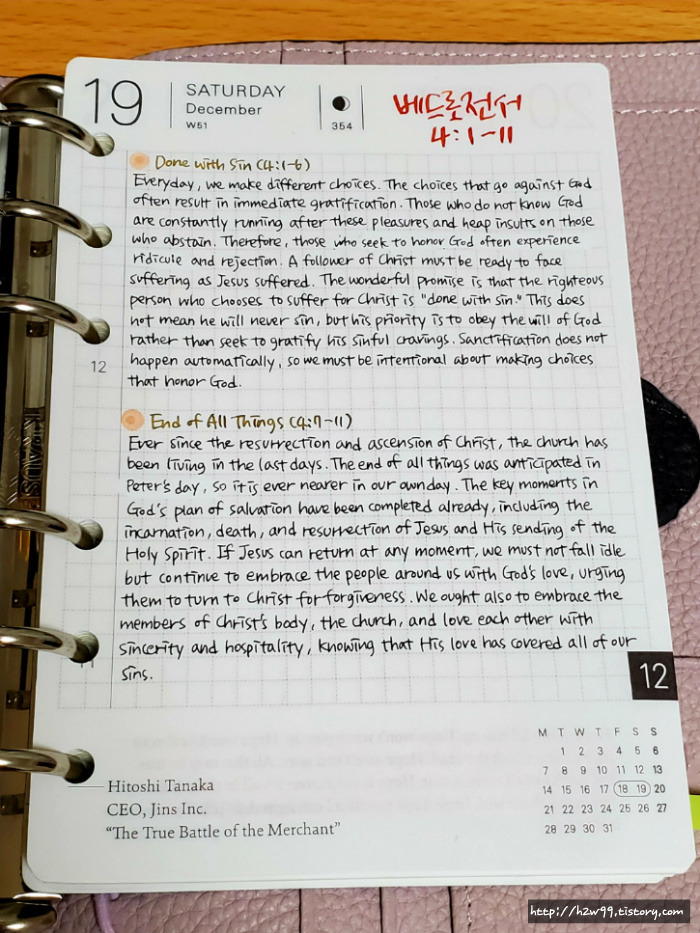 19
SATURDAY
December
W51
354
베드로전서
4:1-11
Done with Sin (4:1-6)
Everyday, we make different choices. The choices that go against God
often result in immediate gratification. Those who do not know God
are constantly running after these pleasures and heap insults on those
who abstain. Therefore, those who seek to honor God often experience
ridicule and rejection. A follower of Christ must be ready to face
suffering as Jesus suffered. The wonderful promise is that the righteous
person who chooses to suffer for Christ is "done with sin." This does
not mean he will never sin, but his priority is to obey the will of God
rather than seek to gratify his sinful cravings. Sanctification does not
12
happen automatically, so we must be intentional about making choices
that honor God.
End of All Things (4:7-11)
Ever since the resurrection and ascension of Christ, the church has
been living in the last days. The end of all things was anticipated in
Peter's day, so it is ever nearer in our own day. The key moments in
God's plan of salvation have been completed already, including the
incarnation, death, and resurrection of Jesus and His sending of the
Holy Spirit. If Jesus can return at any moment, we must not fall idle
but continue to embrace the people around us with God's love, urging
them to turn to Christ for forgiveness. We ought also to embrace the
members of Christ's body, the church, and love each other with
sincerity and hospitality, knowing that His love has covered all of our
sins.
12
M T W T F S S
1 2 3 4 5 6
7 8 9 10 11 12 13
14 15 16 17 18 19 20
21 22 23 24 25 26 27
28 29 30 31
Hitoshi Tanaka
CEO, Jins Inc.
"The True Battle of the Merchant"
http://h2w99.tistory.com